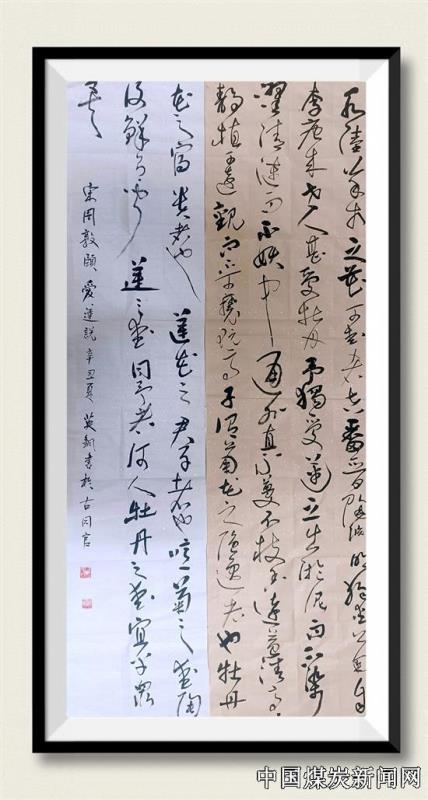 水陸草木之花可愛者甚蕃晉陶淵明獨愛菊自
李唐来世人甚愛牡丹予獨愛蓮之出淤泥而不染
濯清漣而不妖中通外直不蔓不枝香遠益清亭
静植可遠觀而不可褻玩焉予謂菊花之隐逸者也牡丹
花之富貴者也蓮花之君子者也噫菊之愛陶
後鮮有聞蓮之愛同予者何人牡丹之愛宜乎眾
矣
宋周敦頤愛蓮説辛丑夏英書於古同官
中国煤炭新闻网